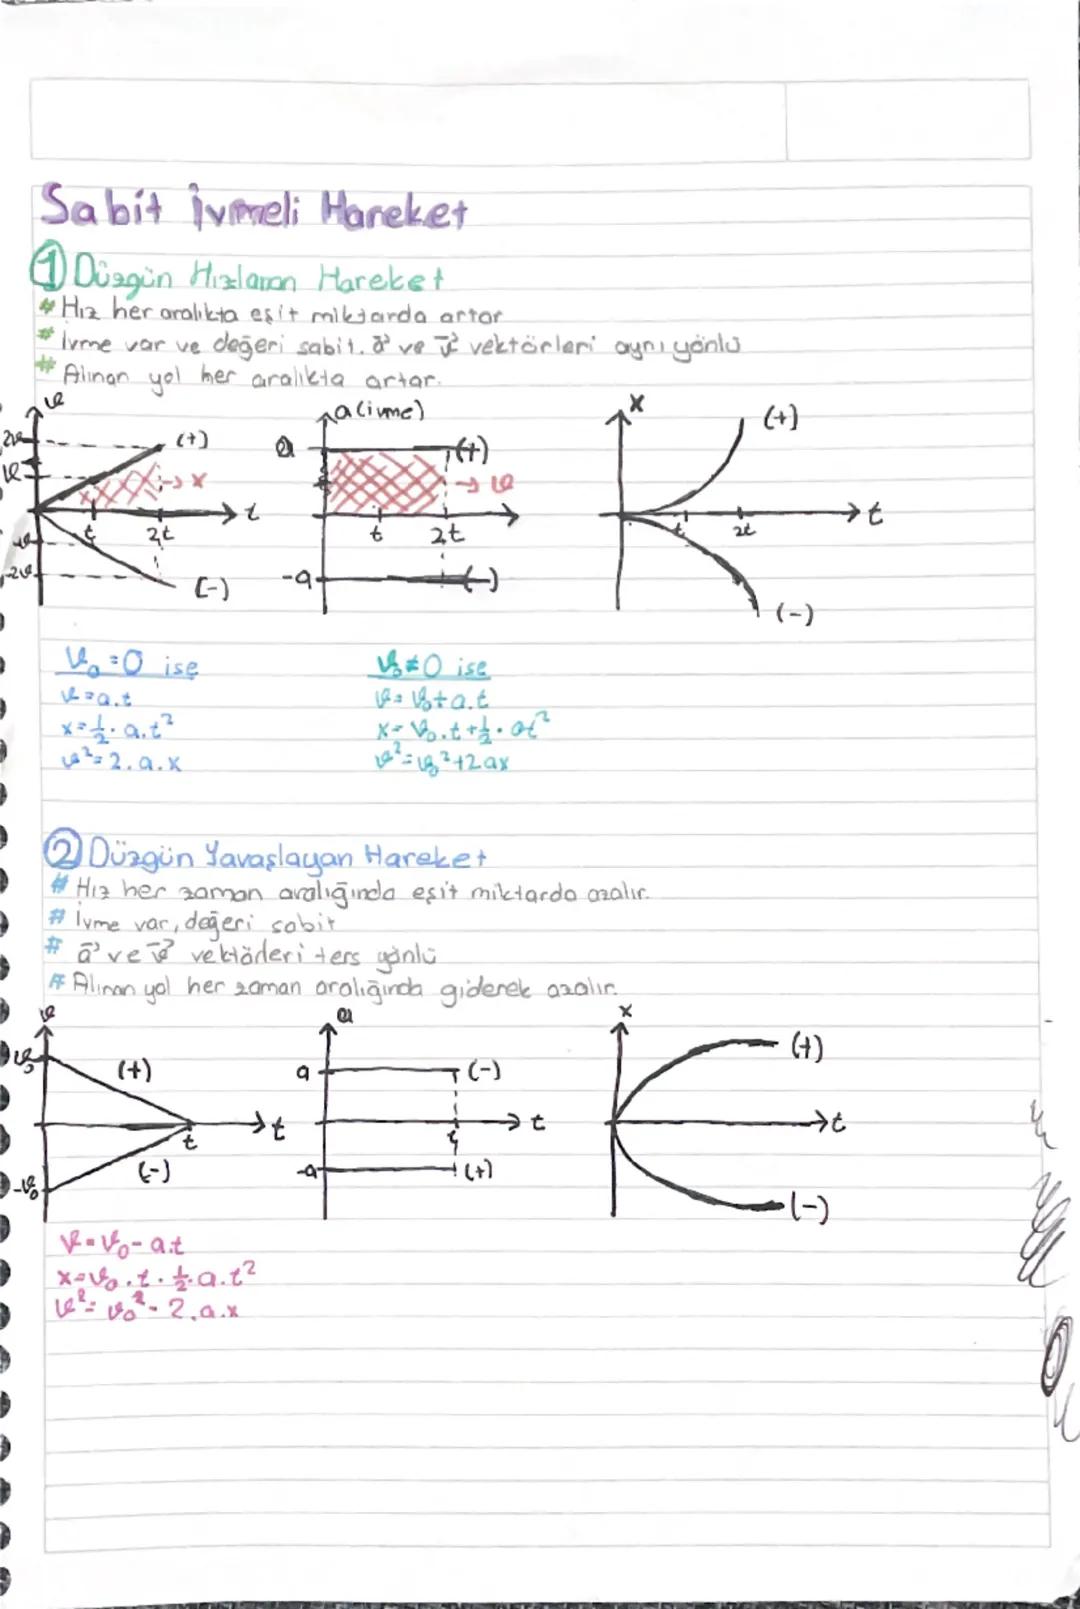 Sabit İvmeli Hareket
1 Düzgün Hızlanan Hareket
# Hız her aralıkta eşit miktarda artar
# İvme var ve değeri sabit. a⃗ ve v⃗ vektörleri aynı yönlü
# Alınan yol her aralıkta artar.
v a (ivme) x
2v (+) a (+) (+)
v → x → v
t 2t t t 2t t 2t t
-v
-2v (-) -a (-) (-)
v₀ = 0 ise v₀ ≠ 0 ise
v = a.t v = v₀ + a.t
x = 1/2 . a.t² x = v₀.t + 1/2 . at²
v² = 2.a.x v² = v₀² + 2ax
2 Düzgün Yavaşlayan Hareket
# Hız her zaman aralığında eşit miktarda azalır.
# İvme var, değeri sabit
# a⃗ ve v⃗ vektörleri ters yönlü
# Alınan yol her zaman aralığında giderek azalır.
v a x
v₀ (+) a (-) (+)
t t t t t
-v₀ (-) -a (+) (-)
v = v₀ - a.t
x = v₀.t . 1/2.a.t²
v² = v₀² - 2.a.x